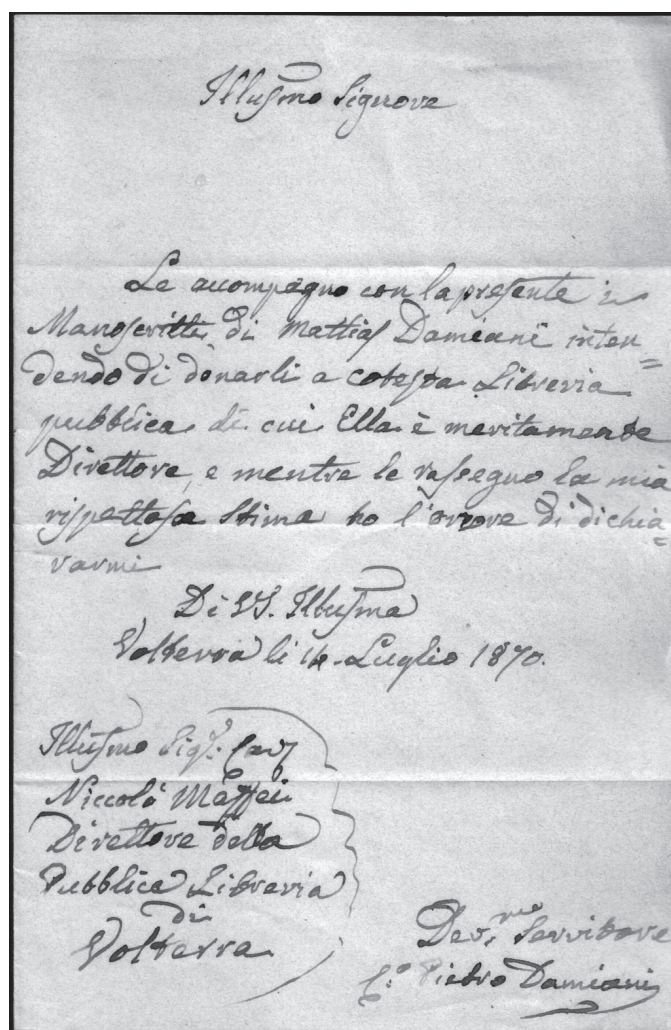 Illusmo Signore
Le accompagno con la presente i
Manoscritti di Mattias Damiani inten=
dendo di donarli a cotesta Libreria
pubblica di cui Ella è meritamente
Direttore, e mentre le rassegno la mia
rispettosa stima ho l'onore di dichia=
rarmi
Di VS. Illusma
Volterra li 14. Luglio 1870.
Illusmo Sigr. Cav
Niccolò Maffei
Direttore della
Pubblica Libreria
di
Volterra
Dev.mo Servitore
Pietro Damiani